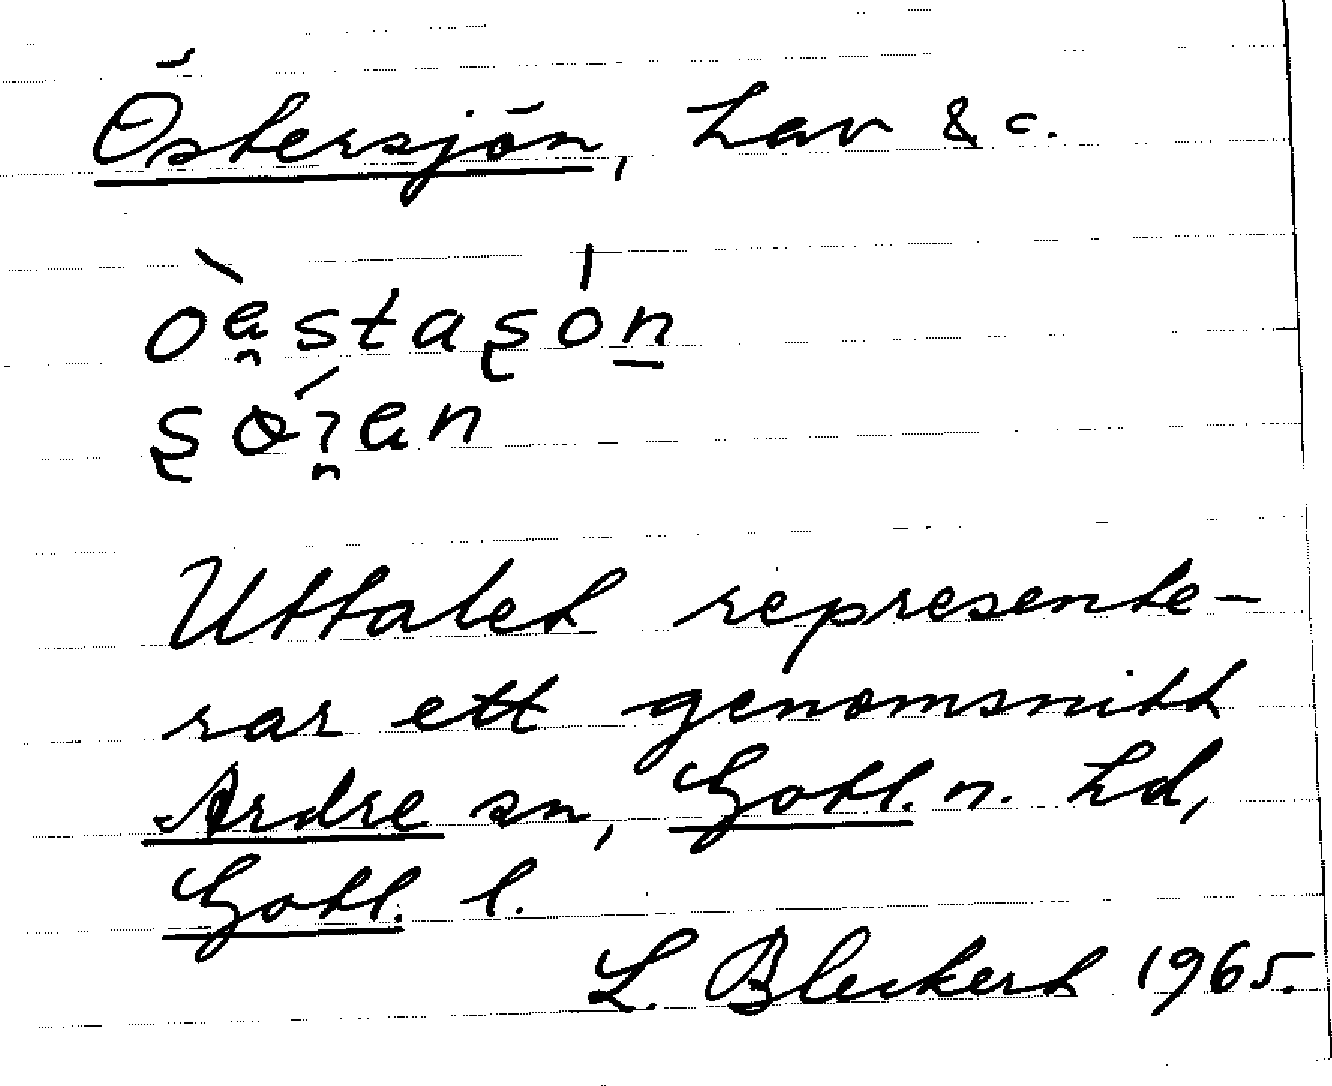 Östersjön, hav & c.
oəstaʂón
ʂøɿən
Uttalet represente-
rar ett genomsnitt
Ardre sn, Gotl. n. hd,
Gotl. l.
L. Bleckert 1965.